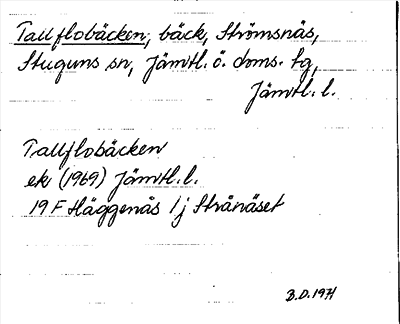 Tallflobäcken, bäck, Strömsnäs,
Stuguns sn, Jämtl. ö. doms. tg,
Jämtl. l.
Tallflobäcken
ek (1969) Jämtl. l.
19 F Häggenås 1 j Strånäset
B.D. 1971